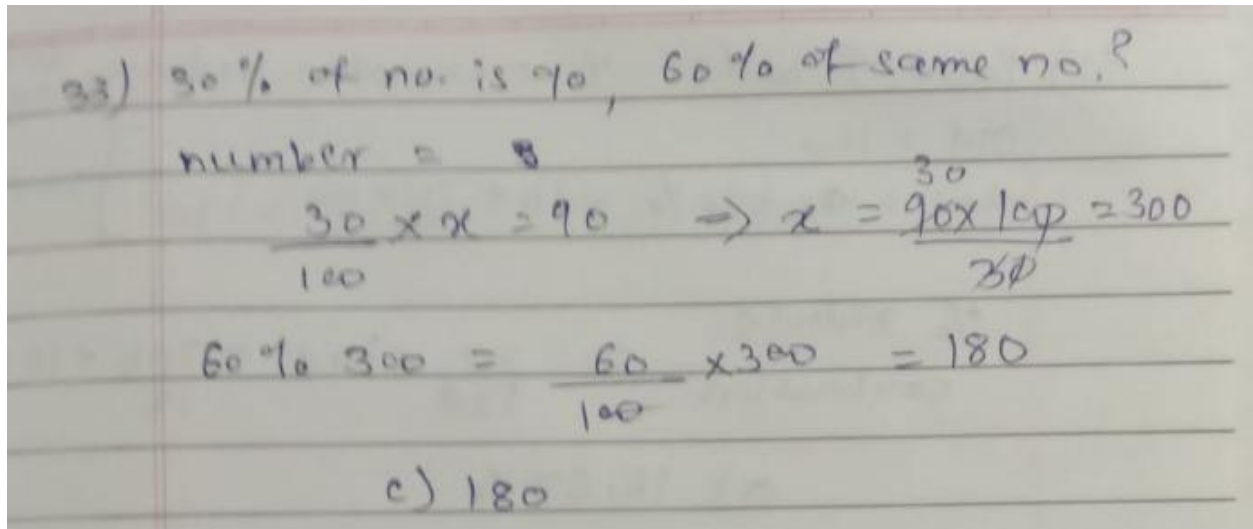 33) 30% of no. is 90, 60% of same no.?
number =
30/100 × x = 90 => x = 90 × 100/30 = 300
30
60% 300 = 60/100 × 300 = 180
c) 180